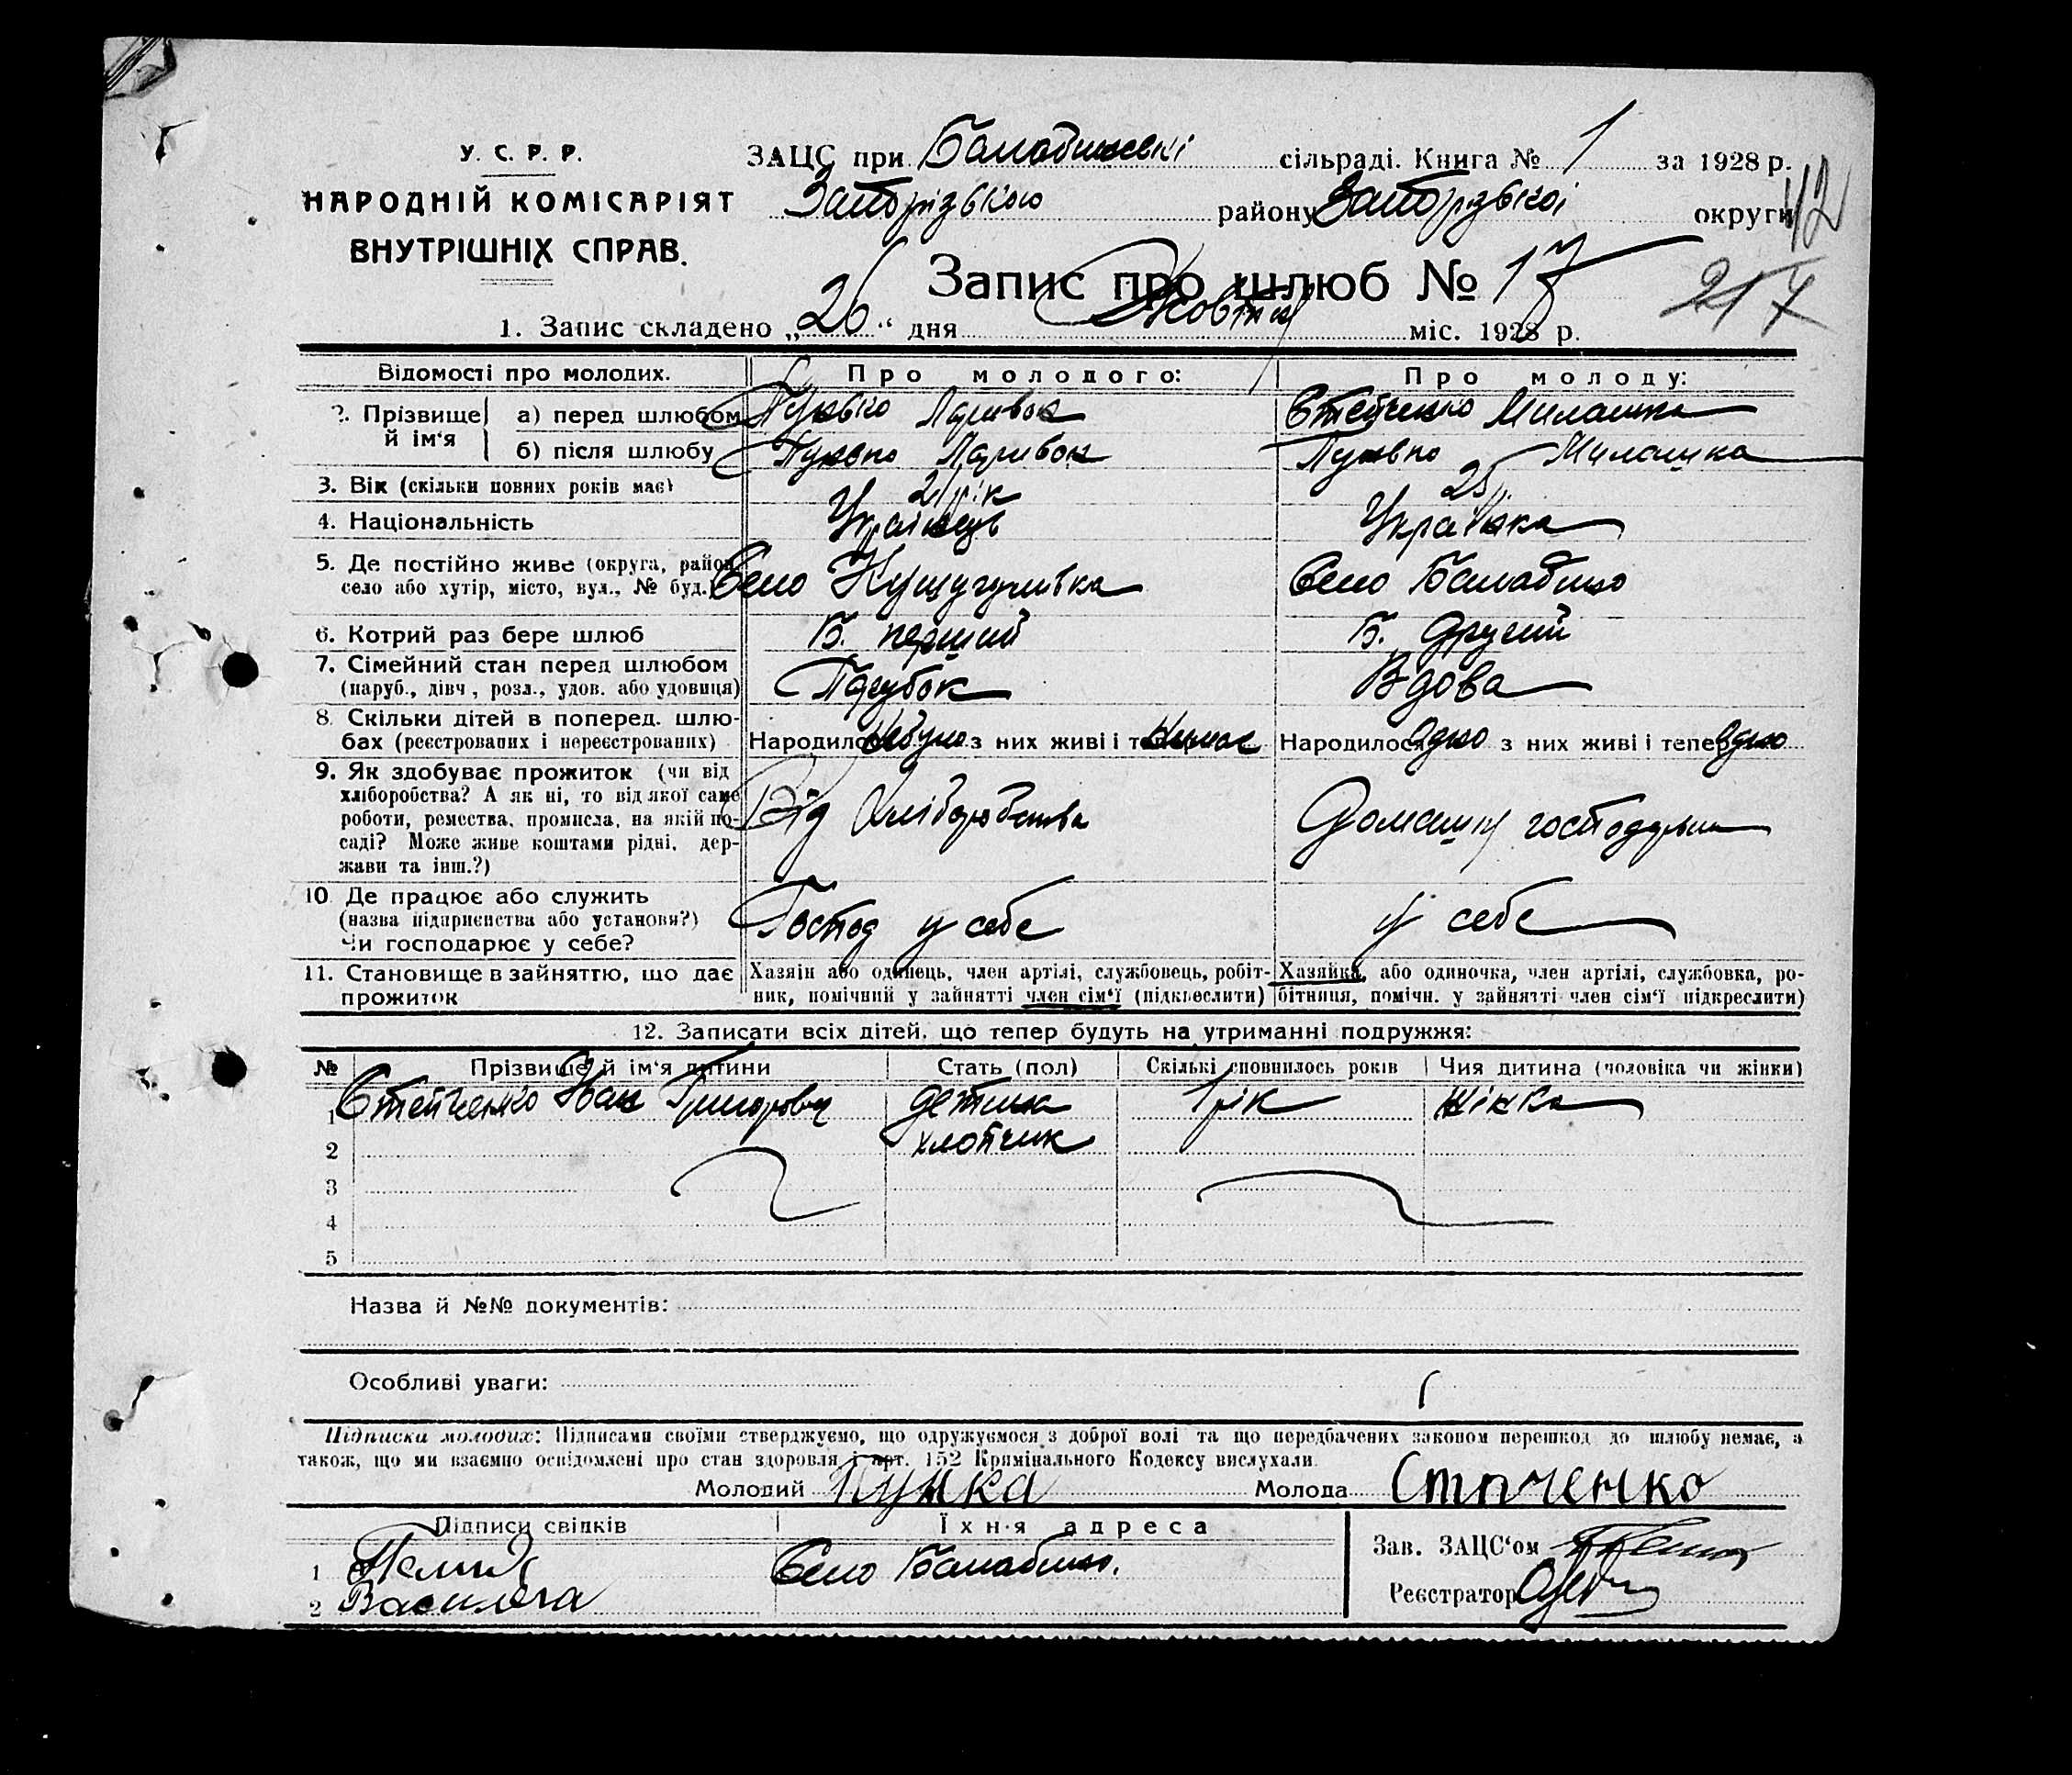 У. С. Р. Р.
НАРОДНІЙ КОМІСАРІЯТ
ВНУТРІШНІХ СПРАВ.
ЗАЦС при Балабинській сільраді. Книга № 1 за 1928 р.
Запорізького району Запорізької округи
42
Запис про шлюб № 17
217
1. Запис складено „26“ дня Жовтня міс. 1928 р.
Відомості про молодих. Про молодого: Про молоду:
2. Прізвище й ім‘я
а) перед шлюбом
б) після шлюбу
Милашка
Милашка
3. Вік (скільки повних років має) 21 рік 25
4. Національність Українець Українка
5. Де постійно живе (округа, район, село або хутір, місто, вул., № буд.) Село Кушугумівка Село Балабино
6. Котрий раз бере шлюб Б. перший Б. другий
7. Сімейний стан перед шлюбом (паруб., дівч., розл., удов. або удовиця) Парубок Вдова
8. Скільки дітей в поперед. шлюбах (реєстрованих і нереєстрованих) Народилося небуло з них живі і тепер немає Народилося одно з них живі і тепер одно
9. Як здобуває прожиток (чи від хліборобства? А як ні, то від якої саме роботи, ремества, промисла, на якій посаді? Може живе коштами рідні, держави та інш.?) Від хліборобства Домашня господарка
10. Де працює або служить (назва підприємства або установи?) Чи господарює у себе? Господ у себе у себе
11. Становище в зайняттю, що дає прожиток
Хазяїн або одинець, член артілі, службовець, робітник, помічний у зайнятті член сім‘ї (підкреслити)
Хазяйка, або одиночка, член артілі, службовка, робітниця, помічн. у зайнятті член сім‘ї підкреслити)
12. Записати всіх дітей, що тепер будуть на утриманні подружжя:
№ Прізвище й ім‘я дитини Стать (пол) Скількі сповнилось років Чия дитина (чоловіка чи жінки)
1 Іван Григорович детина 1 рік Жінка
2 хлопчик
3
4
5
Назва й №№ документів:
Особливі уваги:
Підписка молодих: Підписами своїми стверджуємо, що одружуємося з доброї волі та що передбачених законом перешкод до шлюбу немає, а
також, що ми взаємно освідомлені про стан здоровля і арт. 152 Крямінального Кодексу вислухали.
Молодий Молода Стпченко
Підписи свідків Їхня адреса
1 Село Балабино.
2
Зав. ЗАЦС‘ом
Реєстратор